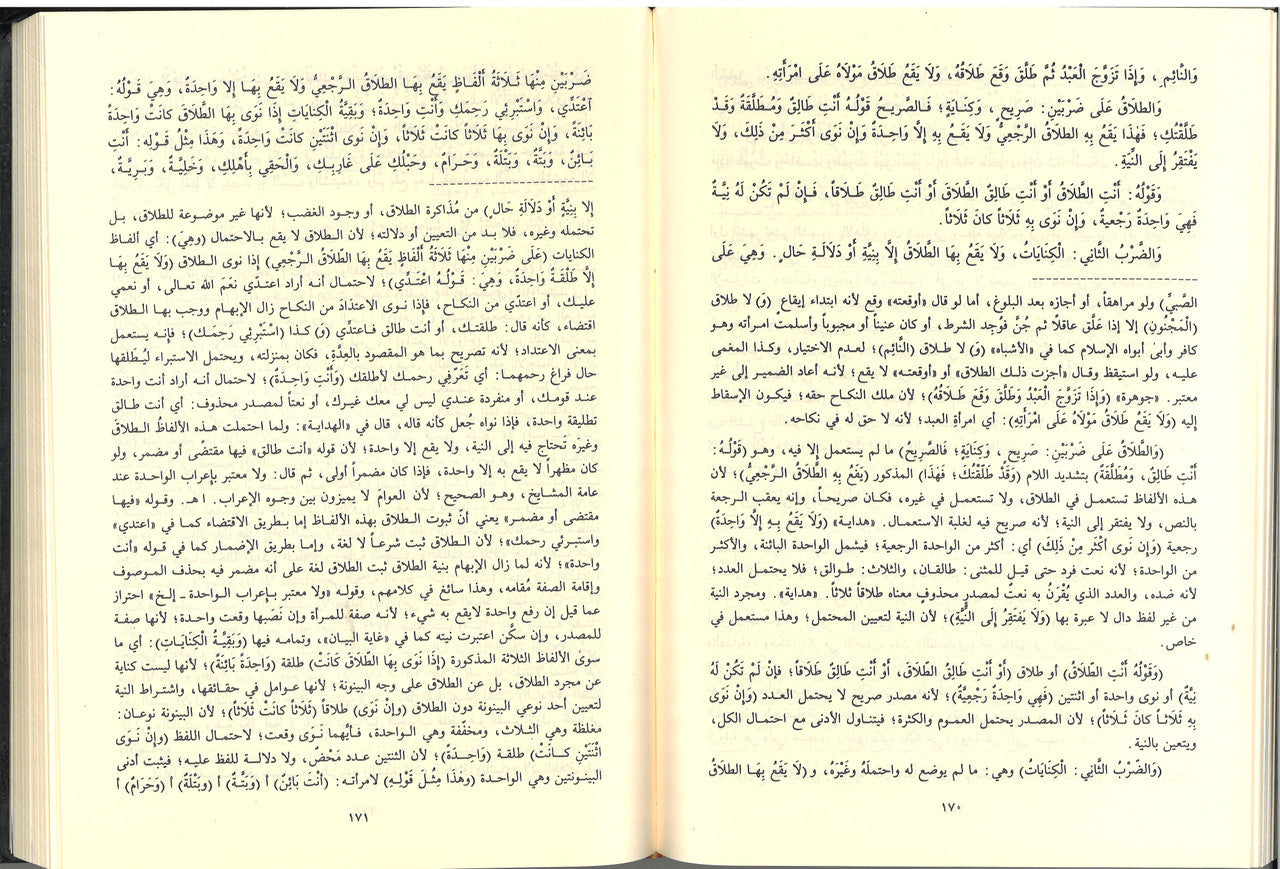 وَالنَّائِمِ، وَإِذَا تَزَوَّجَ الْعَبْدُ ثُمَّ طَلَّقَ وَقَعَ طَلَاقُهُ، وَلَا يَقَعُ طَلَاقُ مَوْلَاهُ عَلَى امْرَأَتِهِ.
وَالطلاقُ عَلَى ضَرْبَيْنِ: صَرِيحٍ، وَكِنَايَةٍ؛ فَالصَّرِيحُ قَوْلُهُ أَنْتِ طَالِقٌ وَمُطَلَّقَةٌ وَقَدْ
طَلَّقْتُكِ؛ فَهٰذَا يَقَعُ بِهِ الطلاقُ الرَّجْعِيُّ وَلَا يَقَعُ بِهِ إِلَّا وَاحِدَةٌ وَإِنْ نَوَى أَكْثَرَ مِنْ ذٰلِكَ، وَلَا
يَفْتَقِرُ إِلَى النِّيَّةِ.
وَقَوْلُهُ: أَنْتِ الطَّلَاقُ أَوْ أَنْتِ طَالِقٌ الطَّلَاقَ أَوْ أَنْتِ طَالِقٌ طَلَاقاً، فَإِنْ لَمْ تَكُنْ لَهُ نِيَّةٌ
فَهِيَ وَاحِدَةٌ رَجْعِيةٌ، وَإِنْ نَوَى بِهِ ثَلَاثاً كانَ ثَلَاثاً.
وَالضَّرْبُ الثَّانِي: الْكِنَايَاتُ، وَلَا يَقَعُ بِهَا الطَّلَاقُ إِلَّا بِنِيَّةٍ أَوْ دَلَالَةِ حَالٍ. وَهِيَ عَلَى
الصَّبِيِّ) ولو مراهقاً، أو أجازه بعد البلوغ، أما لو قال «أوقعته» وقع لأنه ابتداء إيقاع (وَ) لا طلاق
(الْمَجْنُونِ) إلا إذا علَّق عاقلًا ثم جُنَّ فوُجِد الشرط، أو كان عنيناً أو مجبوباً وأسلمت امرأته وهو
كافر وأبى أبواه الإسلام كما في «الأشباه» (وَ) لا طلاق (النَّائِمِ)؛ لعدم الاختيار، وكذا المغمى
عليه، ولو استيقظ وقال «أجزت ذلك الطلاق» أو «أوقعته» لا يقع؛ لأنه أعاد الضمير إلى غير
معتبر. «جوهرة» (وَإِذَا تَزَوَّجَ الْعَبْدُ وَطَلَّقَ وَقَعَ طَلَاقُهُ)؛ لأن ملك النكاح حقه؛ فيكون الإسقاط
إليه (وَلَا يَقَعُ طَلَاقُ مَوْلَاهُ عَلَى امْرَأَتِهِ): أي امرأة العبد؛ لأنه لا حق له في نكاحه.
(وَالطَّلَاقُ عَلَى ضَرْبَيْنِ: صَرِيحٍ، وَكِنَايَةٍ؛ فَالصَّرِيحُ) ما لم يستعمل إلا فيه، وهو (قَوْلُهُ:
أَنْتِ طَالِقٌ، وَمُطَلَّقَةٌ) بتشديد اللام (وَقَدْ طَلَّقْتُكِ؛ فَهٰذَا) المذكور (يَقَعُ بِهِ الطَّلَاقُ الرَّجْعِيُّ)؛ لأن
هذه الألفاظ تستعمل في الطلاق، ولا تستعمل في غيره، فكان صريحاً، وإنه يعقب الرجعة
بالنص، ولا يفتقر إلى النية؛ لأنه صريح فيه لغلبة الاستعمال. «هداية» (وَلَا يَقَعُ بِهِ إِلَّا وَاحِدَةٌ)
رجعية (وَإِنْ نَوَى أَكْثَرَ مِنْ ذٰلِكَ) أي: أكثر من الواحدة الرجعية؛ فيشمل الواحدة البائنة، والأكثر
من الواحدة؛ لأنه نعت فرد حتى قيل للمثنى: طالقان، والثلاث: طوالق؛ فلا يحتمل العدد؛
لأنه ضده، والعدد الذي يُقْرَنُ به نعتٌ لمصدرٍ محذوفٍ معناه طلاقاً ثلاثاً. «هداية». ومجرد النية
من غير لفظ دال لا عبرة بها (وَلَا يَفتَقِرُ إِلَى النِّيَّةِ)؛ لأن النية لتعيين المحتمل؛ وهذا مستعمل في
خاص.
(وَقَوْلُهُ أَنْتِ الطَّلَاقُ) أو طلاق (أَوْ أَنْتِ طَالِقٌ الطَّلَاقَ، أَوْ أَنْتِ طَالِقٌ طَلَاقاً؛ فإنْ لَمْ تَكُنْ لَهُ
نِيَّةٌ) أو نوى واحدة أو اثنتين (فَهِي وَاحِدَةٌ رَجْعِيَّةٌ)؛ لأنه مصدر صريح لا يحتمل العدد (وَإِنْ نَوَى
بِهِ ثَلَاثاً كَانَ ثَلَاثاً)؛ لأن المصدر يحتمل العموم والكثرة؛ فيتناول الأدنى مع احتمال الكل،
ويتعين بالنية.
(وَالضَّرْبُ الثَّانِي: الْكِنَايَاتُ) وهي: ما لم يوضع له واحتملَهُ وغَيْرَهُ، و (لَا يَقَعُ بِهَا الطلَاقُ
١٧٠
ضَرْبَيْنِ مِنْهَا ثَلَاثَةُ أَلْفَاظٍ يَقَعُ بِهَا الطلَاقُ الرَّجْعِيُّ وَلَا يَقَعُ بِهَا إِلا وَاحِدَةٌ، وَهِيَ قَوْلُهُ:
آعْتَدِّي، وَاسْتَبْرِئِي رَحِمَكِ وَأَنْتِ وَاحِدَةٌ؛ وَبَقِيَّةُ الْكِنَايَاتِ إِذَا نَوَى بِهَا الطَّلَاقَ كَانَتْ وَاحِدَةً
بَائِنَةً، وَإِنْ نَوَى بِهَا ثَلَاثاً كَانَتْ ثَلَاثاً، وَإِنْ نَوَى اثْنَتَيْنِ كانَتْ وَاحِدَةً، وَهٰذَا مِثْلُ قَوْلِهِ: أَنْتِ
بَائِنٌ، وَبَتَّةٌ، وَبَتْلَةٌ، وَحَرَامٌ، وحَبْلُكِ عَلَى غَارِبِكِ، وَالْحَقِي بِأَهْلِكِ، وَخَلِيَّةٌ، وَبَرِيَّةٌ،
إِلا بِنِيَّةٍ أَوْ دَلَالَةِ حَالٍ) من مُذَاكرة الطلاق، أو وجود الغضب؛ لأنها غير موضوعة للطلاق، بل
تحتمله وغيره، فلا بد من التعيين أو دلالته؛ لأن الطلاق لا يقع بالاحتمال (وهِيَ): أي ألفاظ
الكنايات (عَلَى ضَرْبَيْنِ مِنْهَا ثَلَاثَةُ أَلْفَاظٍ يَقَعُ بِهَا الطَّلَاقُ الرَّجْعِي) إذا نوى الطلاق (وَلَا يَقَعُ بِهَا
إِلَّا طَلْقَةٌ وَاحِدَةٌ، وَهِيَ: قَوْلُهُ اعْتَدِّي)؛ لاحتمال أنه أراد اعتدي نعَمَ الله تعالى، أو نعمي
عليك، أو اعتدّي من النكاح، فإذا نوى الاعتدَادَ من النكاح زال الإبهام ووجب بها الطلاق
اقتضاء، كأنه قال: طلقتك، أو أنت طالق فاعتدِّي (وَ) كذا (اسْتَبْرِئِي رَحِمَكِ)؛ فإنه يستعمل
بمعنى الاعتداد؛ لأنه تصريح بما هو المقصود بالعِدَّةِ، فكان بمنزلته، ويحتمل الاستبراء ليُطَلقها
حال فراغ رحمهما: أي تَعَرَّفِي رحمك لأطلقك (وَأَنْتِ وَاحِدَةٌ)؛ لاحتمال أنه أراد أنت واحدة
عند قومك، أو منفردة عندي ليس لي معك غيرك، أو نعتاً لمصدر محذوف: أي أنت طالق
تطليقة واحدة، فإذا نواه جُعل كأنه قاله، قال في «الهداية»: ولما احتملت هذه الألفاظ الطلاقَ
وغيره تَحتاج فيه إلى النية، ولا يقع إلا واحدة؛ لأن قوله «أنت طالق» فيها مقتضًى أو مضمر، ولو
كان مظهراً لا يقع به إلا واحدة، فإذا كان مضمراً أولى، ثم قال: ولا معتبر بإعراب الواحدة عند
عامة المشايخ، وهو الصحيح؛ لأن العوامَ لا يميزون بين وجوه الإعراب. ا هـ. وقوله «فيها
مقتضى أو مضمر» يعني أنّ ثبوت الطلاق بهذه الألفاظ إما بطريق الاقتضاء كما في «اعتدي»
واستبرئي رحمك»؛ لأن الطلاق ثبت شرعاً لا لغة، وإما بطريق الإضمار كما في قوله «أنت
واحدة»؛ لأنه لما زال الإبهام بنية الطلاق ثبت الطلاق لغة على أنه مضمر فيه بحذف الموصوف
وإقامة الصفة مُقامه، وهذا سائغ في كلامهم، وقوله «ولا معتبر بإعراب الواحدة ـ إلخ» احتراز
عما قيل إن رفع واحدة لايقع به شيء؛ لأنه صفة للمرأة وإن نَصَبها وقعت واحدة؛ لأنها صفة
للمصدر، وإن سكَّن اعتبرت نيته كما في «غاية البيان»، وتمامه فيها (وَبَقِيَّةُ الْكِنَايَاتِ): أي ما
سوى الألفاظ الثلاثة المذكورة (إِذَا نَوَى بِهَا الطَّلَاقَ كَانَتْ) طلقة (وَاحِدَةً بَائِنَةً)؛ لأنها ليست كناية
عن مجرد الطلاق، بل عن الطلاق على وجه البينونة؛ لأنها عوامل في حقائقها، واشتراط النية
لتعيين أحد نوعي البينونة دون الطلاق (وإن نَوَى) طلاقاً (ثَلَاثاً كانَتْ ثَلَاثاً)؛ لأن البينونة نوعان:
مغلظة وهي الثلاث، ومخفّفة وهي الواحدة، فأيَّهما نَوَى وقعت؛ لاحتمال اللفظ (وإِنْ نَوَى
اثْنَتَيْنِ كَانَتْ) طلقة (وَاحِدَةً)؛ لأن الثنتين عدد مَحْضٌ، ولا دلالة للفظ عليه؛ فيثبت أدنى
البينونتين وهي الواحدة (وهٰذَا مِثْلُ قَوْلِهِ) لامرأته: (أَنْتَ بَائِنٌ) أ (وَبَتَّةٌ) أ (وَبَتْلَةٌ) أ (وَحَرَامٌ) أ
١٧١